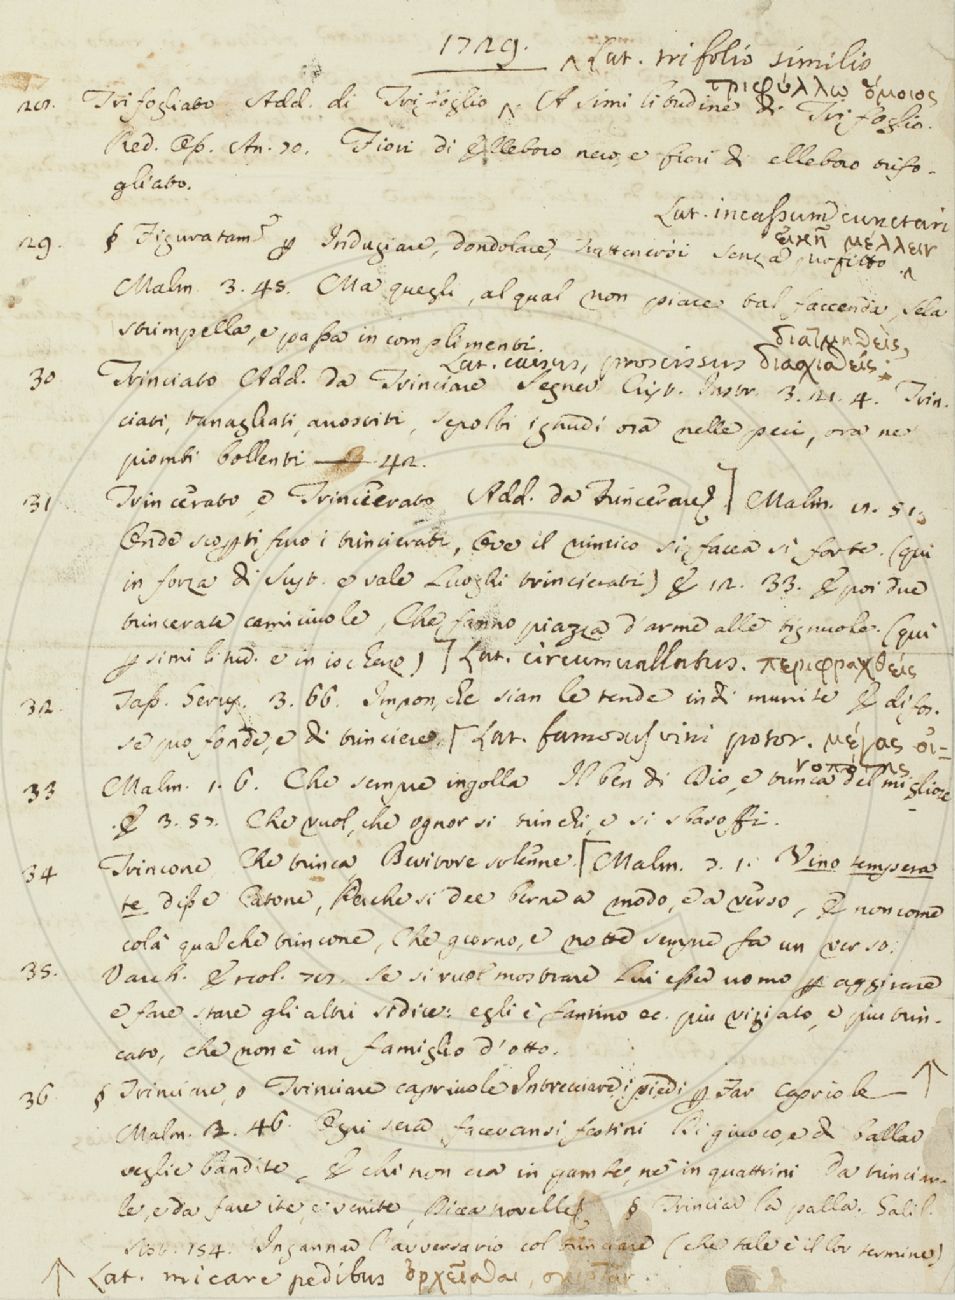 1729.
^ Lat. trifolio similis
τριφύλλῳ ὅμοιος
28. Trifogliato Add. di Trifoglio ^ A similitudine di Trifoglio.
Red. Esp. An. 70. Fiori di Elleboro nero, e fiori di elleboro trifo-
gliato.
Lat. incassum cunctari
εἰκῆ μέλλειν
29. § Figuratam.e p Indugiare, dondolare, trattenersi senza profitto ^
Malm. 3. 48. Ma quegli, al qual non piace tal faccenda, Sela
strimpella, e passa in complimenti.
διατμηθεὶς
Lat. caesus, proscissus διασχισθείς
30 Trinciato Add. da Trinciare Segner. Crist. Instr. 3. 21. 4. Trin-
ciati, tanagliati, arrostiti, sepolti ignudi ora nelle peci, ora ne'
piombi bollenti 42.
31 Trincerato e Trincierato Add. da trincerare] Malm. 11. 51.
Onde scossi furo i trincierati, Ove il nimico si facea si forte. (qui
in forza di Sust. e vale Luoghi trincierati) E 12. 33. E poi due
trincerate camiciuole, Che fanno piazza d'arme alle tignuole. (qui
p similitud. e in ischerzo)] Lat. circumvallatus. περιφραχθείς
32. Tass. Gerus. 3. 66. Impon, che sian le tende indi munite E di fos-
se profonde, e di trinciere. [Lat. famosus vini potor. μέγας οἰ-
νοπότης
33 Malm. 1. 6. Che sempre ingolla Il ben di Dio, e trinca del migliore
E 3. 57. Che vuol, che ognor si trinchi, e si sbasoffi.
34 Trincone Che trinca Bevitore solenne. [Malm. 7. 1. Vino tempera
te disse Catone, Perche si dee berne a modo, e a verso, E non come
colà qualche trincone, Che giorno, e notte sempre fa un verso.
35. Varch. Ercol. Se si vuol mostrare lui esser uomo p aggirare
e fare stare gli altri si dice: egli è fantino ec. più viziato, e più trin-
cato, che non è un famiglio d'otto.
36 § Trinciare, o Trinciare capriuole Intrecciare i piedi p Far capriole ↑
Malm. 2. 46. Ogni sera facevansi festini Di giuoco, e di ballar
veglie bandite, E chi non era in gambe, nè in quattrini Da trinciar-
le, e da fare ite, e venite, Dicea novelle] § Trinciar la palla. Galil.
154. Ingannar l'avversario col trinciare (che tale è il lor termine)
↑ Lat. micare pedibus ὀρχεῖσθαι,